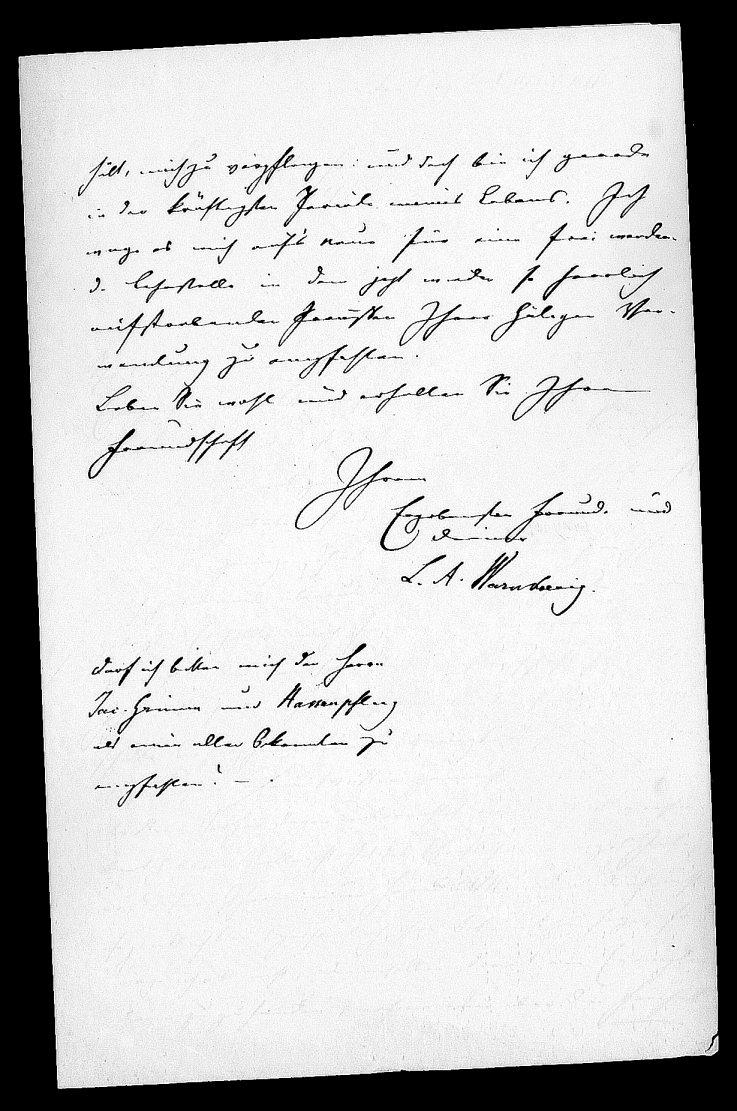 hält, mich zu verpflanzen: und doch bin ich gerade
in der kräftigsten Periode meines Lebens. Ich
wage es mich aufs neue für eine frei werden-
de Lehrstelle in dem jetzt wieder so herrlich
aufstrebenden Preußen Ihrer gütigen Ver-
wendung zu empfehlen.
Leben Sie wohl und erhalten Sie Ihre
Freundschaft
Ihrem
Ergebensten Freund und
Diener
L. A. Warnkoenig.
Darf ich bitten mich den Herrn
Jac. Grimm und Hassenpflug
als einen alten Bekannten zu
empfehlen! —